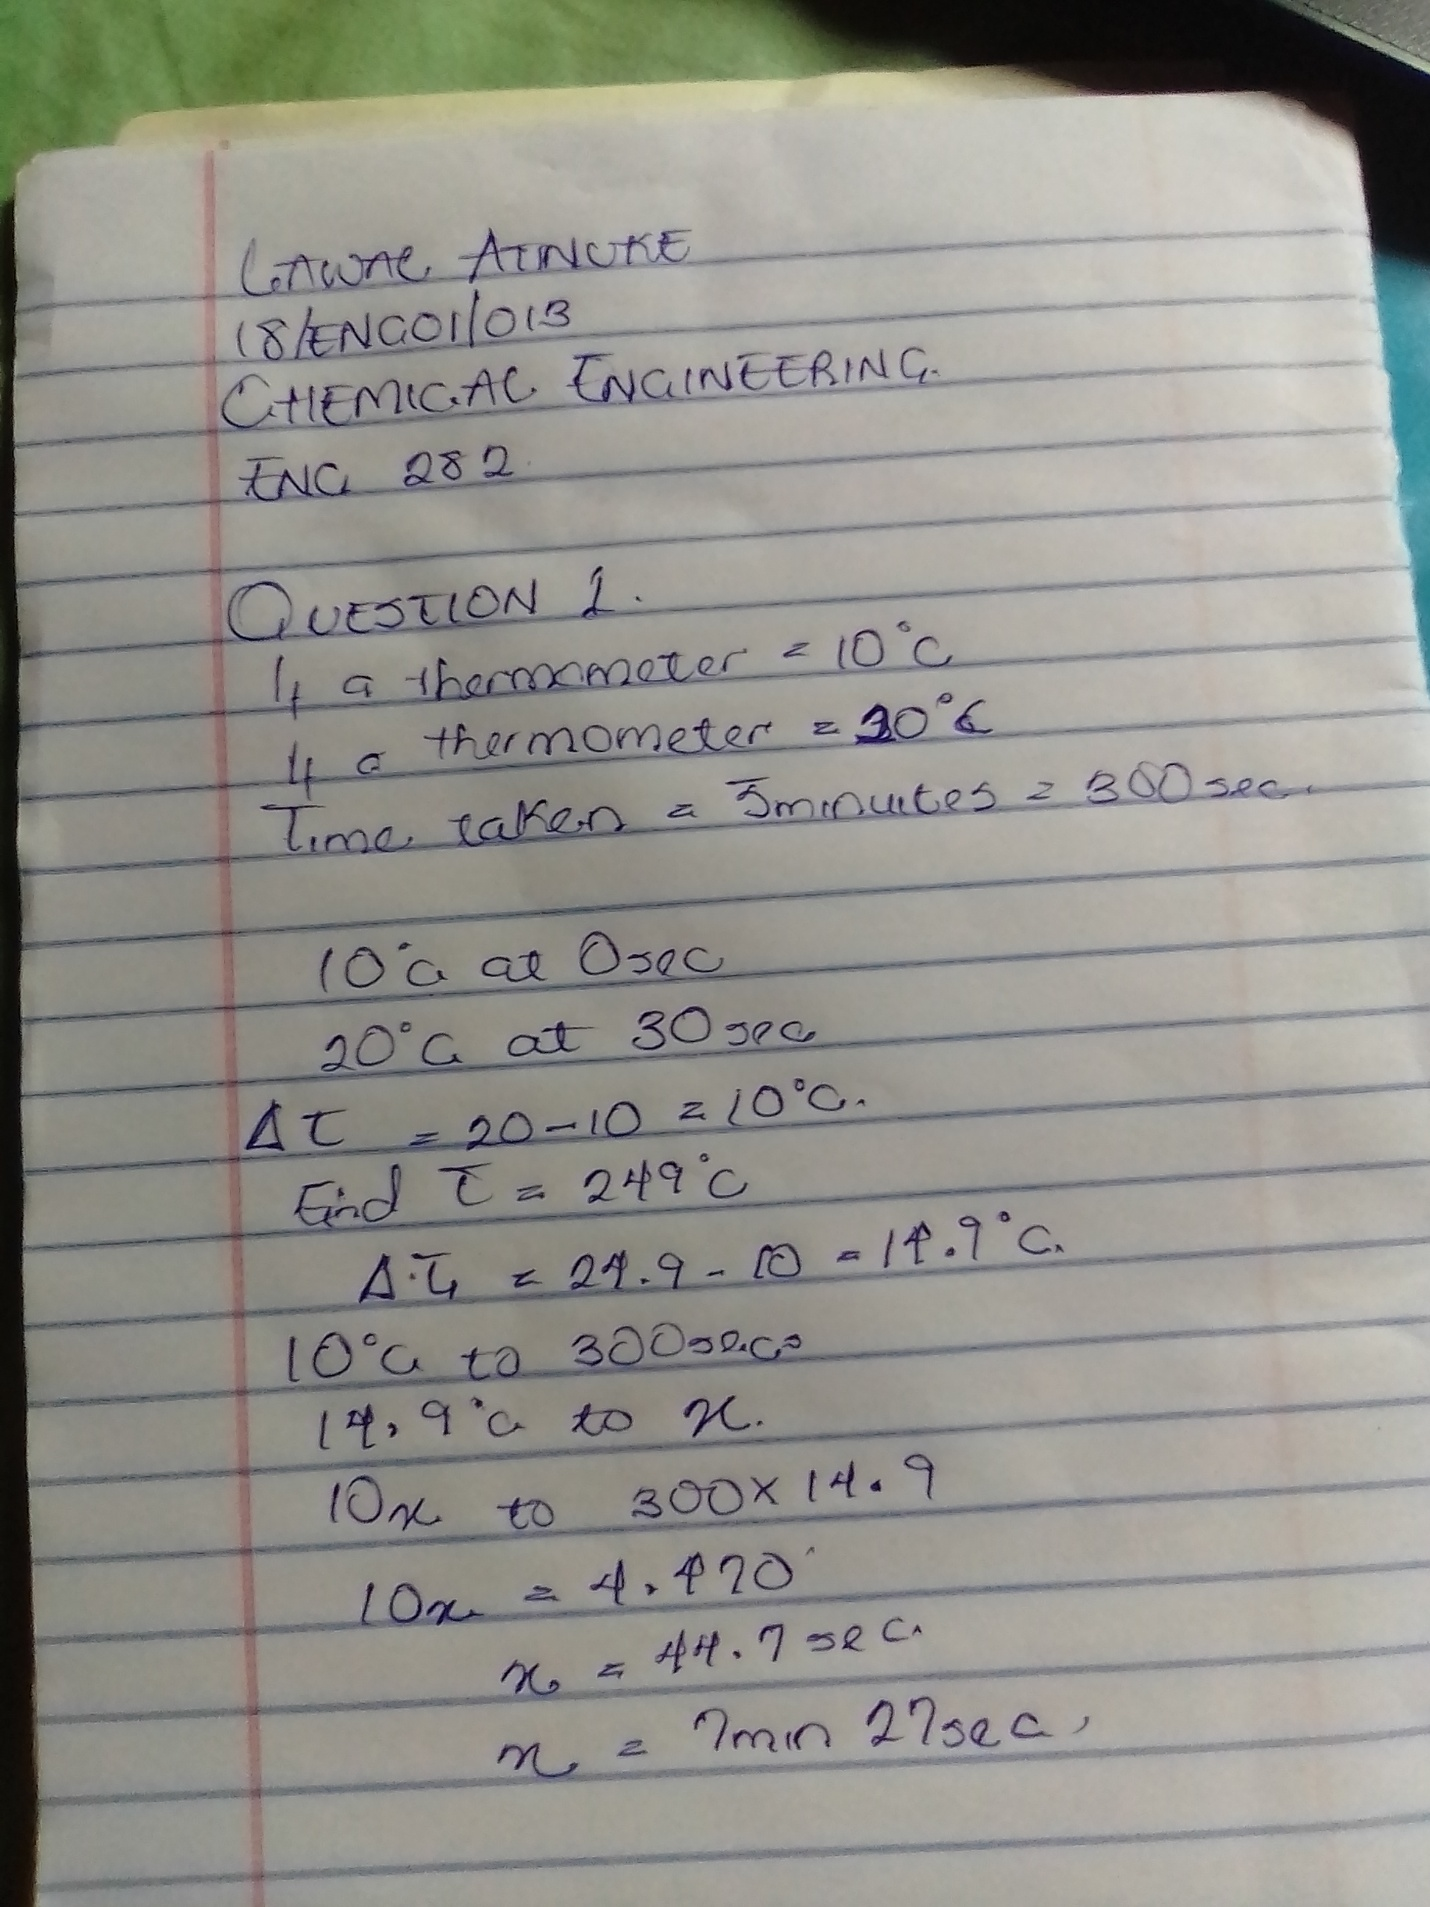 LAWAL ATINUKE
18/ENG01/013
CHEMICAL ENGINEERING.
ENG 282.
QUESTION 1.
If a thermometer = 10°C
If a thermometer = 20°C
Time taken = 5minutes = 300sec.
10°C at 0sec
20°C at 30sec
ΔT = 20-10 = 10°C.
Find T = 249°C
ΔT = 24.9 - 10 = 14.9°C.
10°C to 300secs
14.9°C to x.
10x to 300x14.9
10x = 4.470
x = 44.7sec.
x = 7min 27sec,